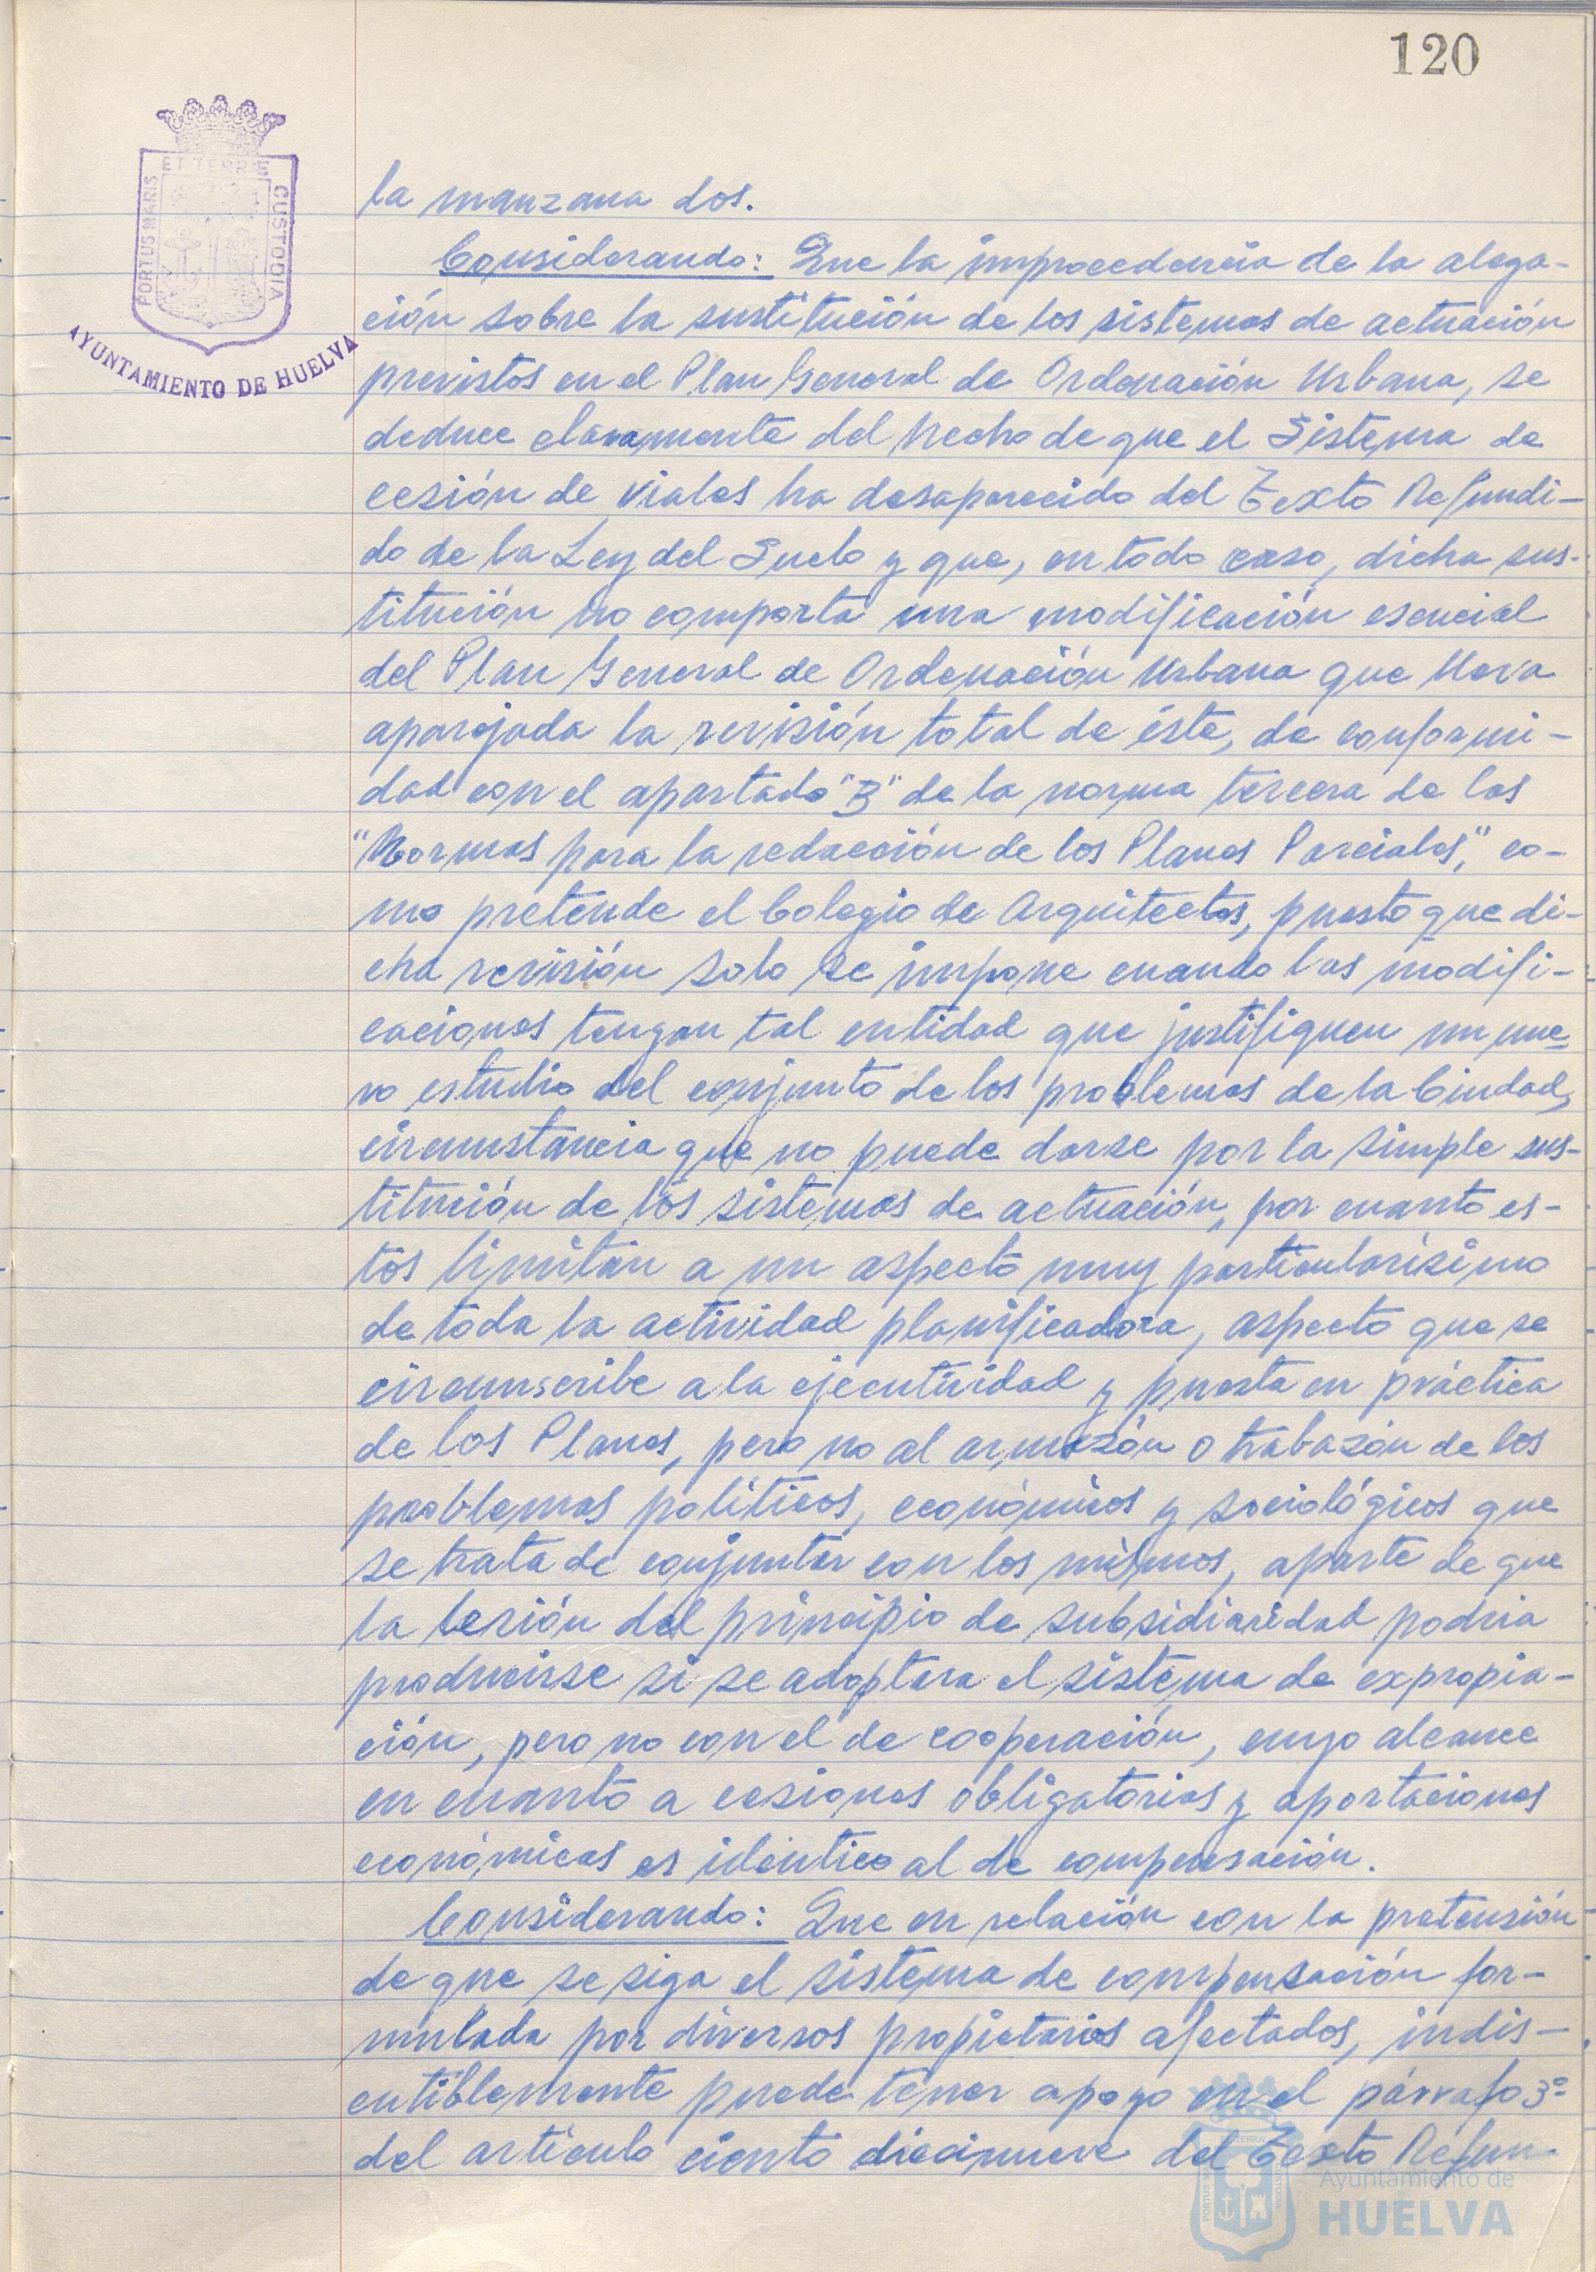 120
ET TERRE
PORTUS MARIS
CUSTODIA
AYUNTAMIENTO DE HUELVA
la manzana dos.
Considerando: Que la improcedencia de la alega-
ción sobre la sustitución de los sistemas de actuación
previstos en el Plan General de Ordenación Urbana, se
deduce claramente del hecho de que el Sistema de
cesión de viales ha desaparecido del Texto Refundi-
do de la Ley del Suelo y que, en todo caso, dicha sus-
titución no comporta una modificación esencial
del Plan General de Ordenación Urbana que lleva
aparejada la revisión total de éste, de conformi-
dad con el apartado "B" de la norma tercera de las
"Normas para la redacción de los Planes Parciales", co-
mo pretende el Colegio de Arquitectos, puesto que di-
cha revisión solo se impone cuando las modifi-
caciones tengan tal entidad que justifiquen un nue-
vo estudio del conjunto de los problemas de la Ciudad,
circunstancia que no puede darse por la simple sus-
titución de los sistemas de actuación, por cuanto es-
tos limitan a un aspecto muy particularísimo
de toda la actividad planificadora, aspecto que se
circunscribe a la ejecutividad y puesta en práctica
de los Planes, pero no al armazón o trabazón de los
problemas políticos, económicos y sociológicos que
se trata de conjuntar con los mismos, aparte de que
la lesión del principio de subsidiaridad podría
producirse si se adoptara el sistema de expropia-
ción, pero no con el de cooperación, cuyo alcance
en cuanto a cesiones obligatorias y aportaciones
económicas es idéntico al de compensación.
Considerando: Que en relación con la pretensión
de que se siga el sistema de compensación for-
mulada por diversos propietarios afectados, indis-
cutiblemente puede tener apoyo en el párrafo 3º
del artículo ciento diecinueve del Texto Refun-
Ayuntamiento de
HUELVA